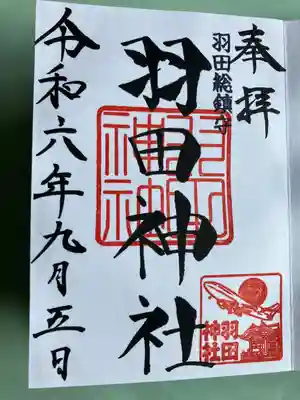 奉拝
羽田総鎮守
羽田神社
羽田神社
令和六年九月五日
羽田
神社